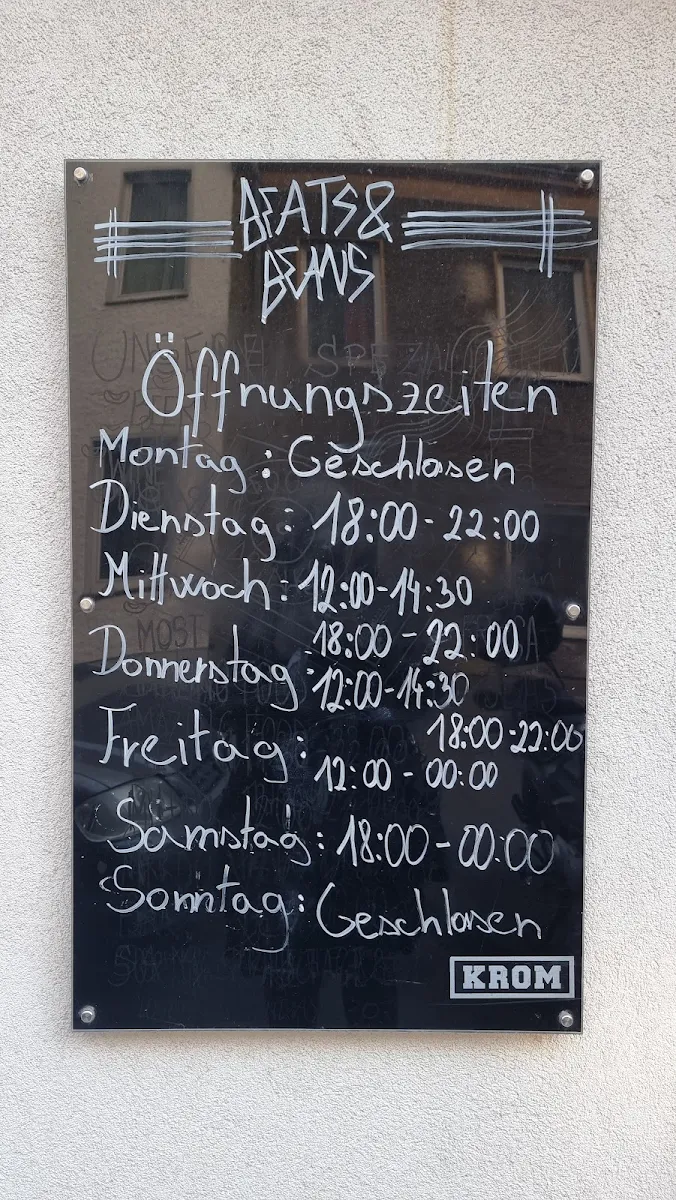 BEATS &
BEANS
Öffnungszeiten
Montag: Geschlossen
Dienstag: 18:00-22:00
Mittwoch: 12:00-14:30
18:00-22:00
Donnerstag: 12:00-14:30
18:00-22:00
Freitag: 12:00-00:00
Samstag: 18:00-00:00
Sonntag: Geschlossen
KROM